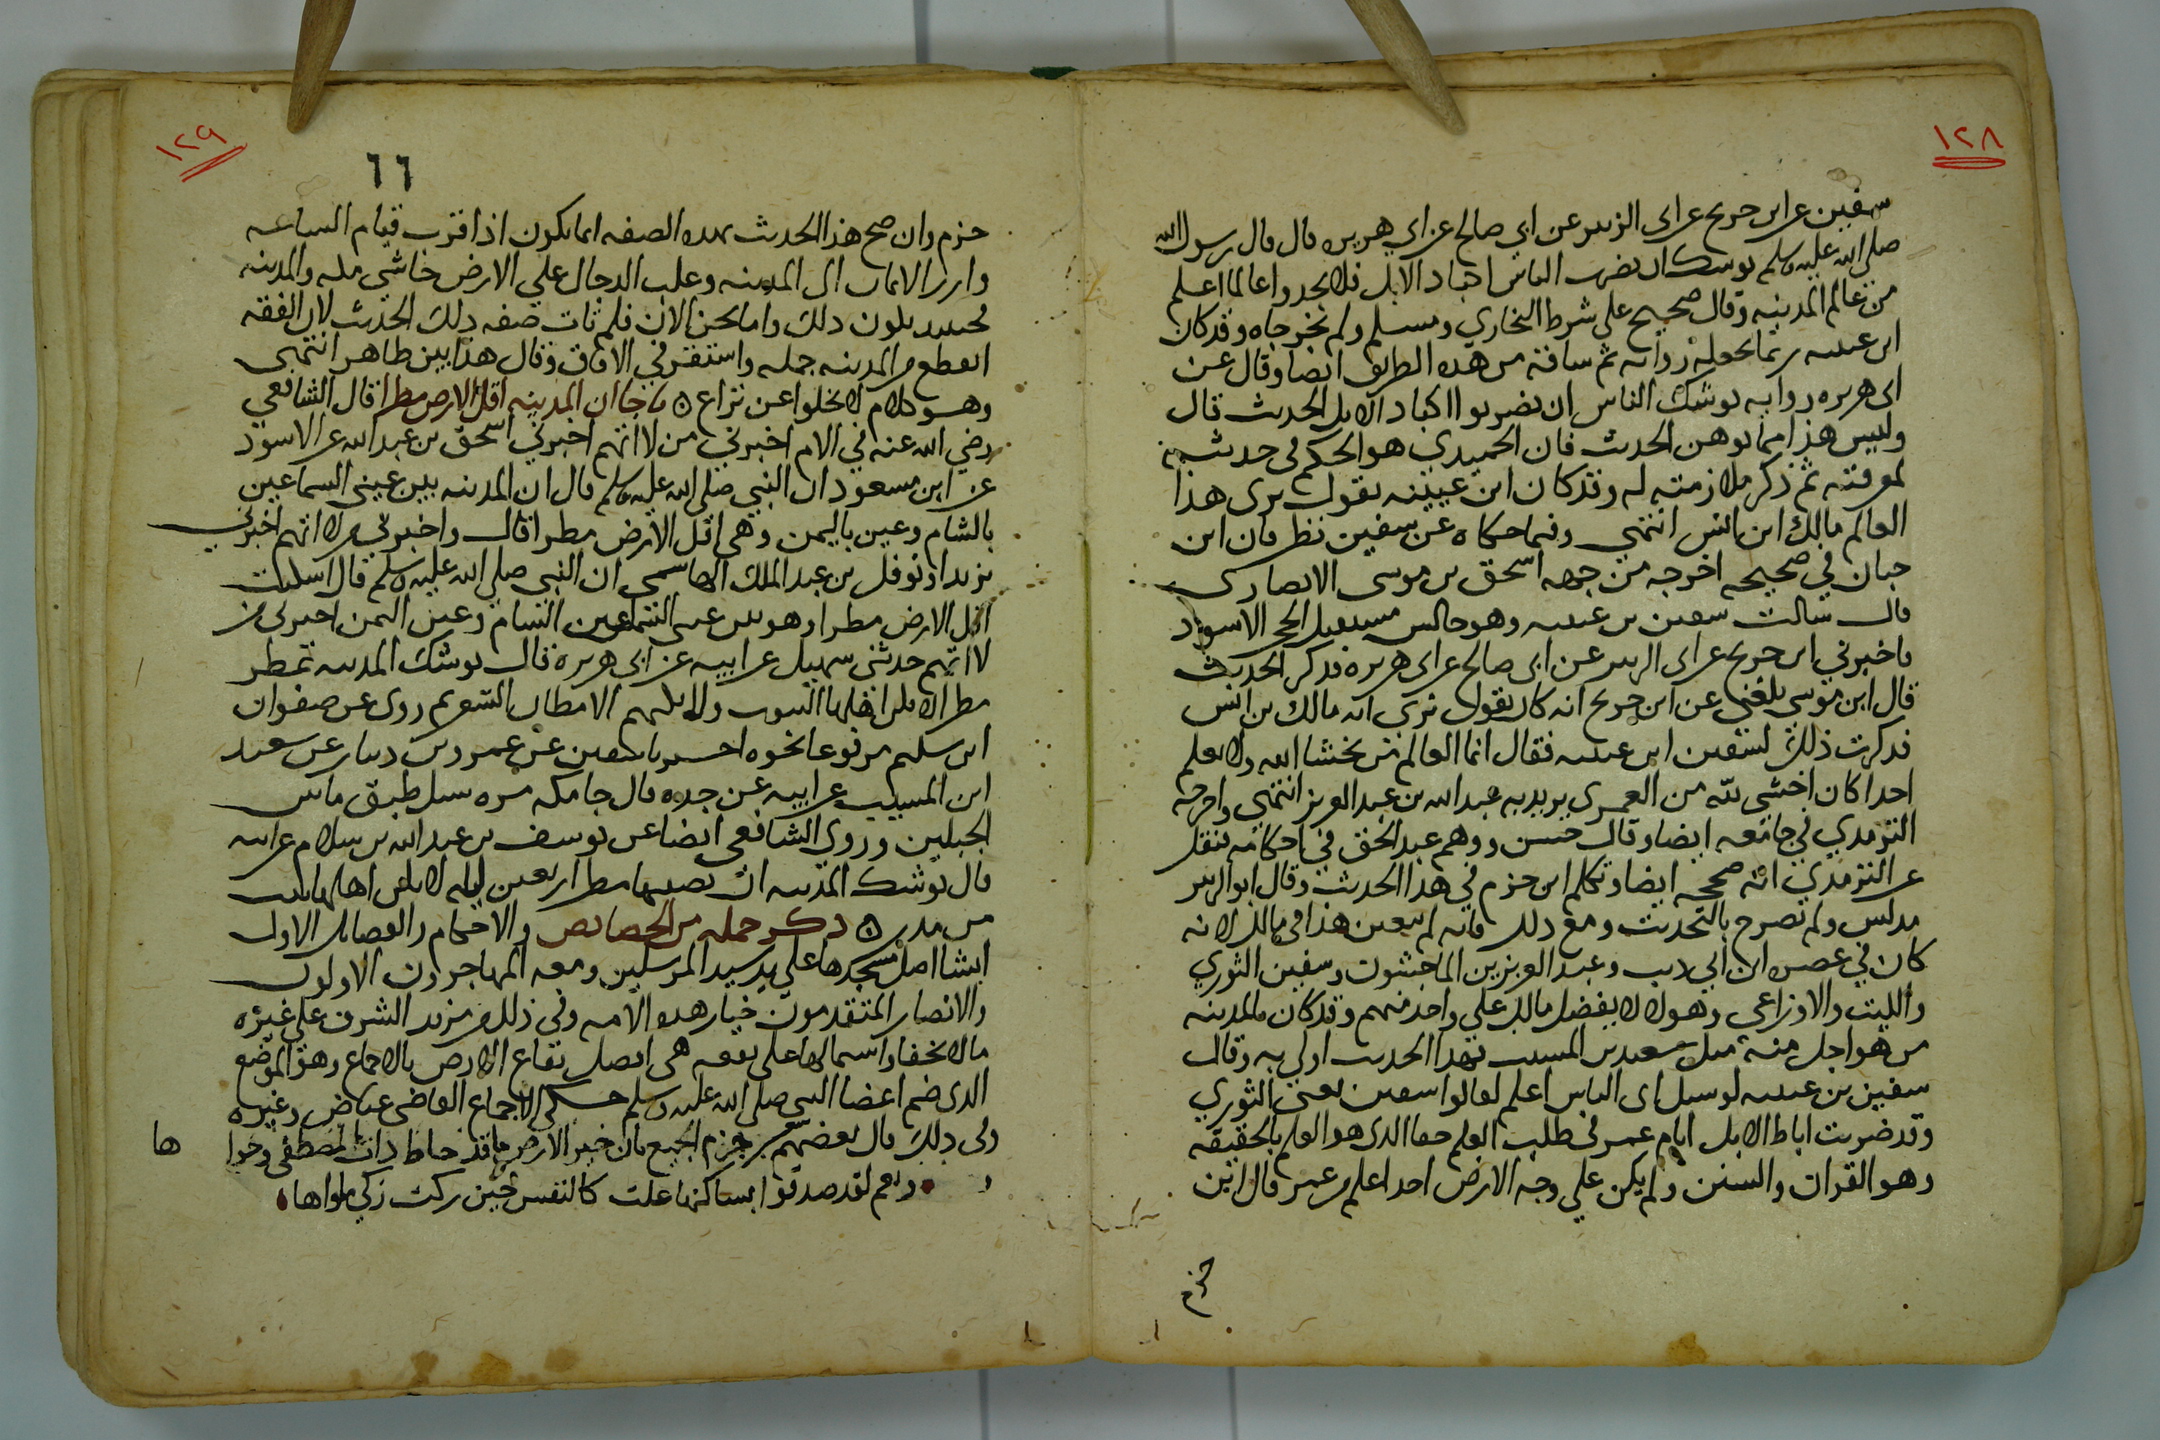 ١٢٨
سفين عن ابن جريج عن ابى الزبير عن ابي صالح عن ابي هريره قال قال رسول الله
صلى الله عليه وسلم يوشك ان يضرب الناس اكباد الابل فلا يجدوا عالما اعلم
من عالم المدينه وقال صحيح على شرط البخاري ومسلم ولم يخرجاه وقد كان
ابن عيينه ربما يجعله روايه ثم ساقه من هذه الطريق ايضا وقال عن
ابى هريره روايه يوشك الناس ان يضربوا اكباد الابل الحديث قال
وليس هذا مما يوهن الحديث فان الحميدي هو الحكم في حديثه
لمعرفته ثم ذكر ملازمته له وقد كان ابن عيينه يقول نرى هذا
العالم مالك ابن انس انتهى وفيما حكاه عن سفين نظر فان ابن
حبان في صحيحه اخرجه من جهه اسحق بن موسى الانصارى
قال سالت سفين بن عيينه وهو جالس مستقبل الحجر الاسود
فاخبرني ابن جريج عن ابى الزبير عن ابى صالح عن ابى هريره فذكر الحديث
قال ابن موسى بلغني عن ابن جريج انه كان يقول نرى انه مالك بن انس
فذكرت ذلك لسفين ابن عيينه فقال انما العالم من يخشا الله ولا يعلم
احدا كان اخشى لله من العمري يريد به عبد الله بن عبد العزيز انتهى واخرجه
الترمذي في جامعه ايضا وقال حسن ووهم عبد الحق في احكامه فنقل
عن الترمذي انه صححه ايضا وتكلم ابن حزم في هذا الحديث وقال ابو الزبير
مدلس ولم يصرح بالتحديث ومع ذلك فانه لم يتعين هذا في مالك لانه
كان في عصره ابن ابي ذيب وعبد العزيز بن الماجشون وسفين الثوري
والليث والاوزاعى وهولا لا يفضل مالك على واحد منهم وقد كان بالمدينه
من هو اجل منه مثل سعيد بن المسيب فهذا الحديث اولى به وقال
سفين بن عيينه لو سيل اى الناس اعلم لقالوا سفين يعنى الثوري
وقد ضربت اباط الابل ايام عمر في طلب العلم حقا الذى هو العلم بالحقيقه
وهو القران والسنن ولم يكن على وجه الارض احد اعلم من عمر قال ابن
حزم
١٢٩
٦٦
حزم وان صح هذا الحديث بهذه الصفه انما يكون اذا اقترب قيام الساعه
وارز الايمان الى المدينه وغلب الدجال على الارض حاشى مكه والمدينه
فحينيد يكون ذلك واما نحن الان فلم تات صفه ذلك الحديث لان الفقه
انقطع من المدينه جمله واستقر في الافاق وقال هذا بين ظاهر انتهى
وهو كلام لا يخلوا عن نزاع ه ما جا ان المدينه اقل الارض مطرا قال الشافعي
رضي الله عنه في الام اخبرني من لا اتهم اخبرني اسحق بن عبد الله عن الاسود
عن ابن مسعود ان النبي صلى الله عليه وسلم قال ان المدينه بين عيني السما عين
بالشام وعين باليمن وهي اقل الارض مطرا قال واخبرني من لا اتهم اخبرني
يزيد او نوفل بن عبد الملك الهاشمى ان النبي صلى الله عليه وسلم قال اسكنت
اقل الارض مطرا وهو بين عينى السما عين الشام وعين اليمن اخبرنى من
لا اتهم حدثنى سهيل عن ابيه عن ابى هريره قال يوشك المدينه تمطر
مطرا لا يكن اهلها البيوت ولا يكنهم الا مظال الشعر ثم روى عن صفوان
ابن سليم مرفوعا نحوه اخبرنا سفين عن عمرو بن دينار عن سعيد
ابن المسيب عن ابيه عن جده قال جا مكه مره سيل طبق ما بين
الجبلين وروي الشافعى ايضا عن يوسف بن عبد الله بن سلام عن ابيه
قال يوشك المدينه ان يصيبها مطر اربعين ليله لا يكن اهلها بيت
من مدر ه ذكر جمله من الخصايص والاحكام والفضايل الاول
انشا اصل مسجدها على يد سيد المرسلين ومعه المهاجرون الاولون
والانصار المتقدمون خيار هذه الامه وفي ذلك من مزيد الشرف على غيره
ما لا يخفا واشتمالها على بقعه هى افضل بقاع الارض بالاجماع وهو الموضع
الذى ضم اعضا النبى صلى الله عليه وسلم حكى الاجماع القاضى عياض وغيره
وفى ذلك قال بعضهم جزم الجميع بان خير الارض ما قد حاط ذات المصطفى وحوا ها
ونعم لقد صدقوا بساكنها علت كالنفس حين زكت زكي ماواها